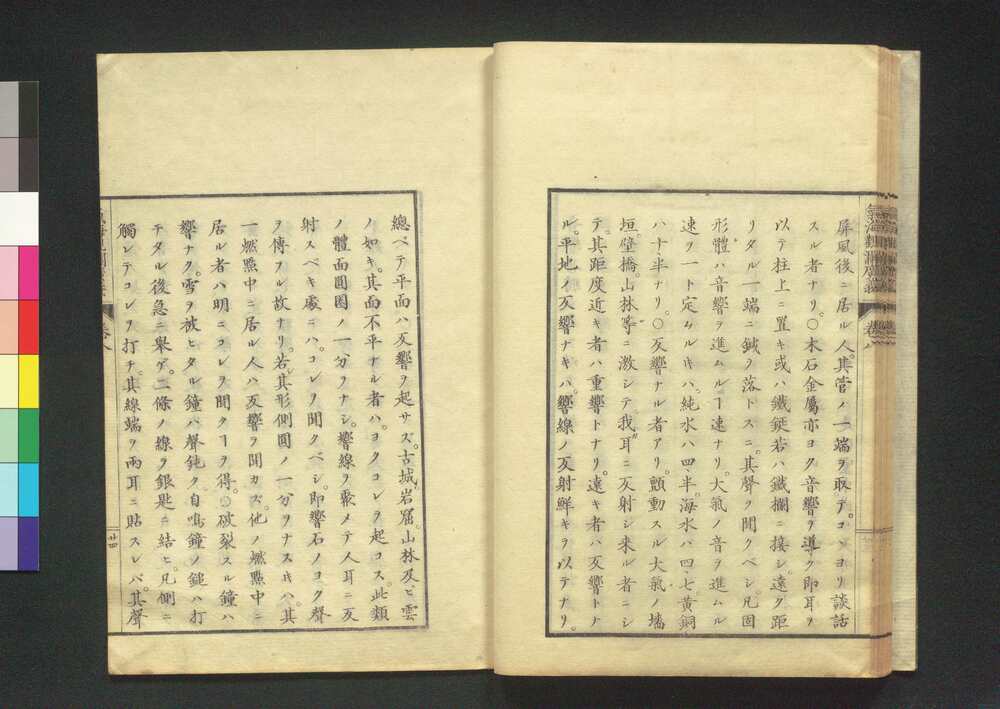 氣海觀瀾廣義 卷八
屏風後ニ居ル人。其管ノ一端ヲ取テ。コレヨリ談話
スル者ナリ。〇木石金屬亦ヨク音響ヲ導ク即耳ヲ
以テ柱上ニ置キ或ハ鐵鋌若ハ鐵欄ニ接シ遠ク距
リタル一端ニ鍼ヲ落トスニ。其聲ヲ聞クベシ。凡固
形體ハ音響ヲ進ムルヿ速ナリ。大氣ノ音ヲ進ムル
速ヲ一ト定ムルキハ。純水ハ四半。海水ハ四七。黄銅
ハ十半ナリ。〇反響ナル者アリ。顫動スル大氣ノ墻
垣。壁。橋。山林等ニ激シテ我耳ニ反射シ来ル者ニシ
テ。其距度近キ者ハ重響トナリ。遠キ者ハ反響トナ
ル。平地ノ反響ナキハ。響線ノ反射鮮キヲ以テナリ。
總ベテ平面ハ反響ヲ起サズ。古城岩窟。山林及ヒ雲
ノ如キ。其面不平ナル者ハ。ヨクコレヲ起コス。此類
ノ體面圓圈ノ一分ヲナシ。響線ヲ聚メテ人耳ニ反
射スベキ處ニハ。コレヲ聞クベシ。即響石ノヨク聲
ヲ傳フル故ナリ。若其形側圓ノ一分ヲナスキハ。其
一燃點中ニ居ル人ハ反響ヲ聞カズ。他ノ燃點中ニ
居ル者ハ明ニコレヲ聞クヿヲ得。〇破裂スル鐘ハ
響ナク。雪ヲ被ヒタル鐘ハ聲鈍ク自鳴鐘ノ鎚ハ打
チタル後急ニ舉ゲ。二條ノ線ヲ銀匙ニ結ヒ。几側ニ
觸レテコレヲ打チ。其線端ヲ兩耳ニ貼スレバ。其聲
廿四